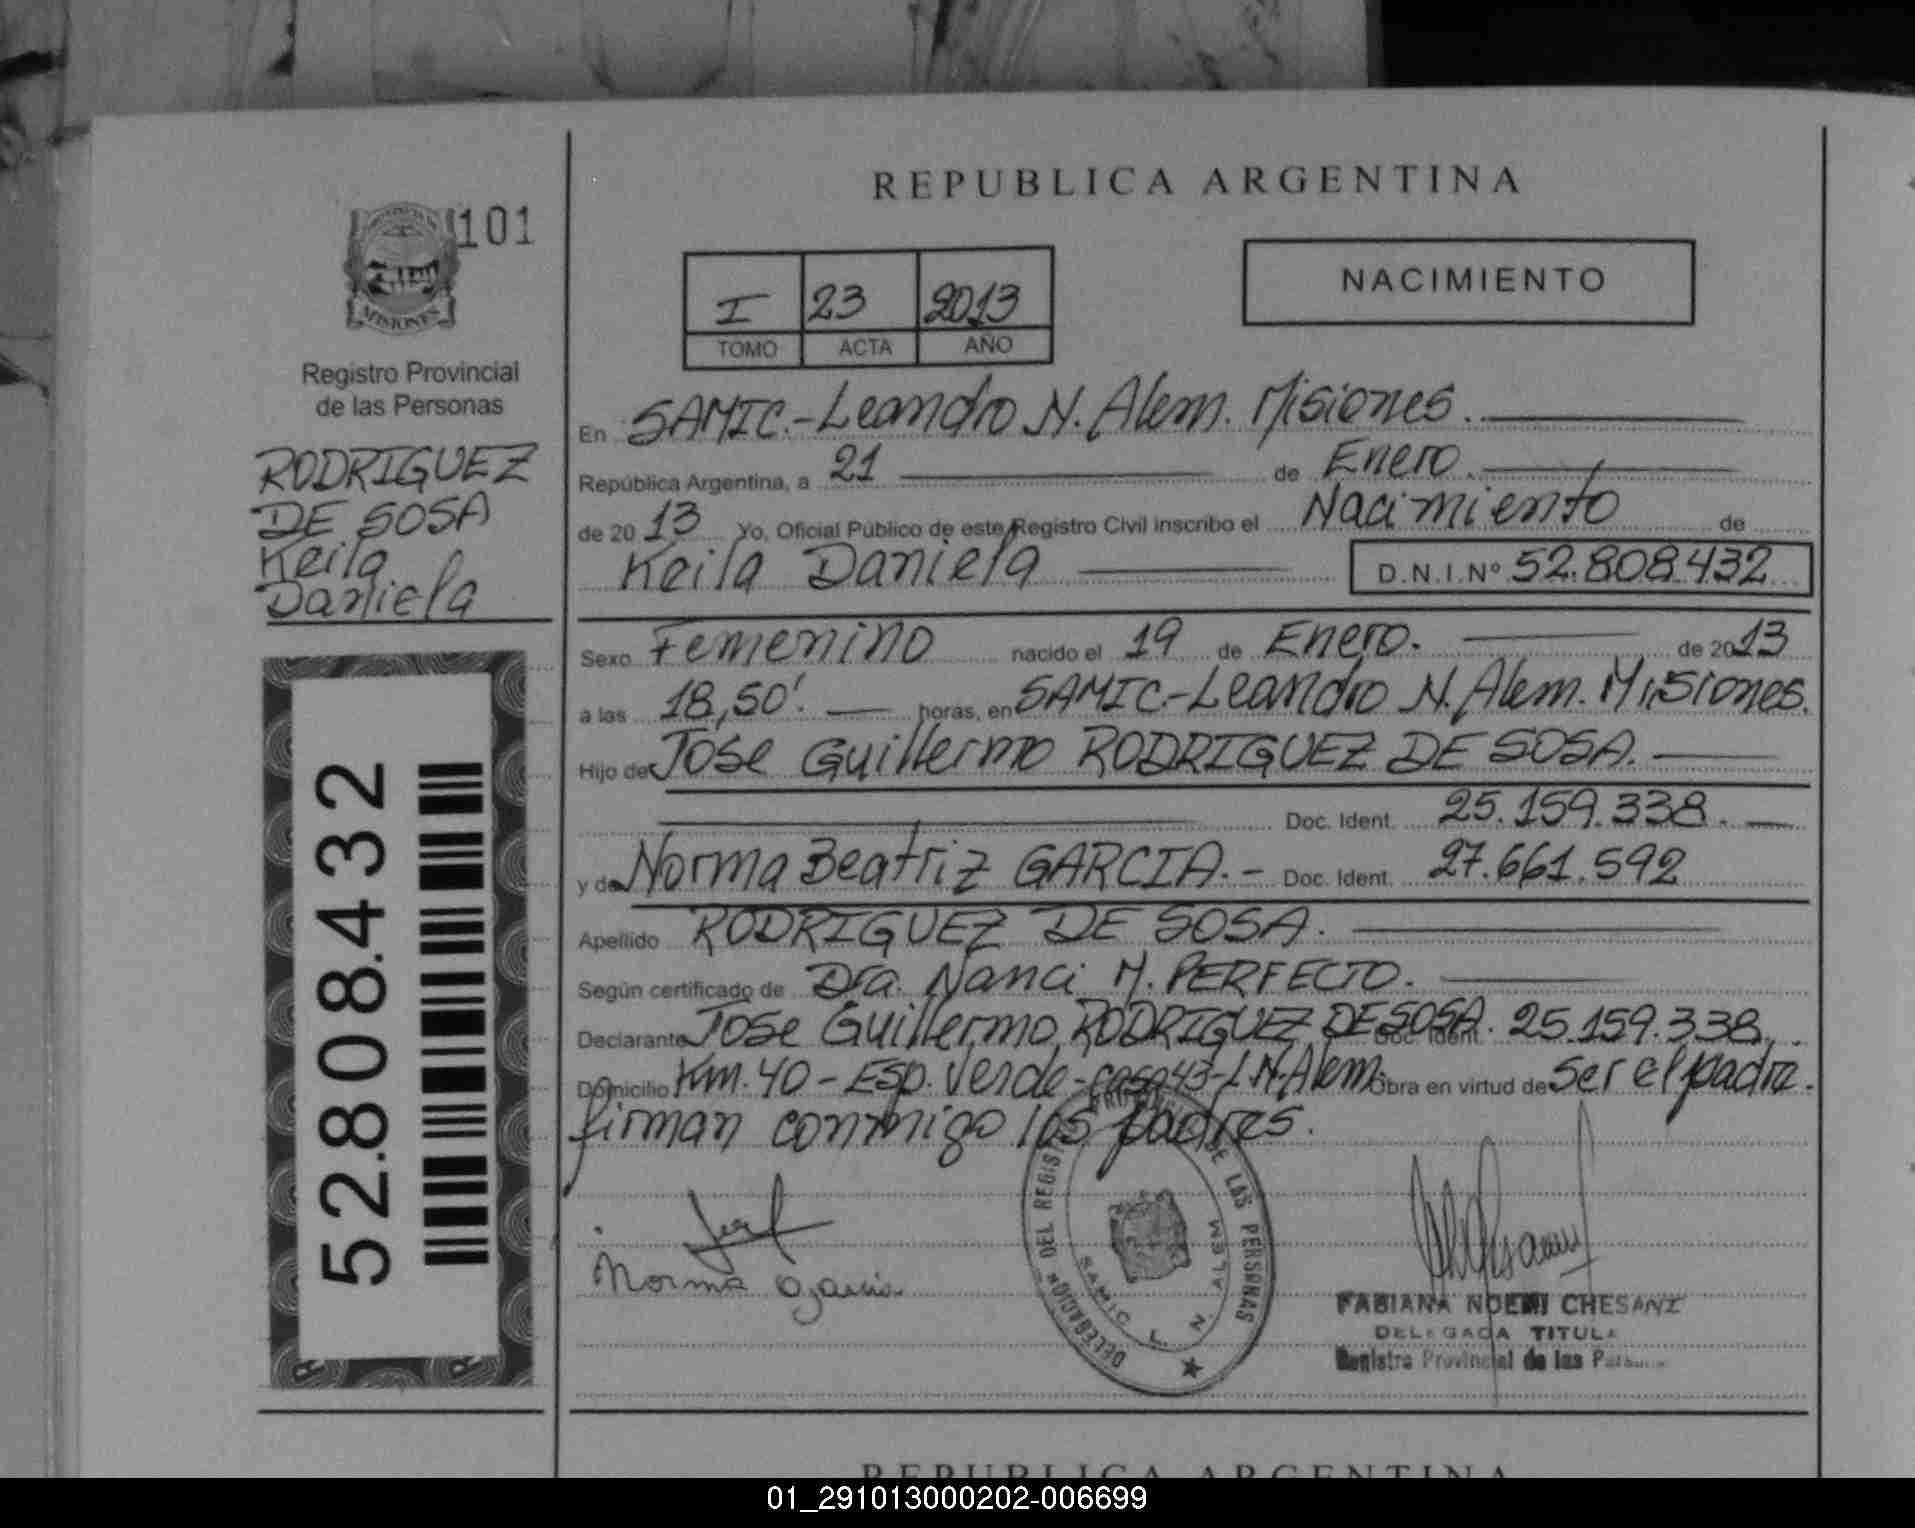 REPUBLICA ARGENTINA
101
MISIONES
Registro Provincial
de las Personas
RODRIGUEZ
DE SOSA
Keila
Daniela
52.808.432
NACIMIENTO
I 23 2013
TOMO ACTA AÑO
En SAMIC.-Leandro N. Alem. Misiones.
República Argentina, a 21 de Enero.
de 2013 Yo, Oficial Público de este Registro Civil inscribo el Nacimiento de
Keila Daniela D.N.I.Nº 52.808.432
Sexo Femenino nacido el 19 de Enero. de 2013
a las 18,50'. horas, en SAMIC.-Leandro N. Alem. Misiones.
Hijo de Jose Guillermo RODRIGUEZ DE SOSA.
Doc. Ident. 25.159.338.
y de Norma Beatriz GARCIA.- Doc. Ident. 27.661.592
Apellido RODRIGUEZ DE SOSA.
Según certificado de Dra. Nanci M. PERFECTO.
Declarante Jose Guillermo RODRIGUEZ DE SOSA. Doc. Ident. 25.159.338.
Domicilio Km. 40 - Esp. Verde - casa 43 - L.N. Alem. Obra en virtud de ser el padre.
firman conmigo los padres.
Norma Garcia
DELEGACION DEL REGISTRO PROVINCIAL DE LAS PERSONAS
SAMIC L. N. ALEM
FABIANA NOEMI CHESANI
DELEGADA TITULAR
Registro Provincial de las Personas
REPUBLICA ARGENTINA
01_291013000202-006699